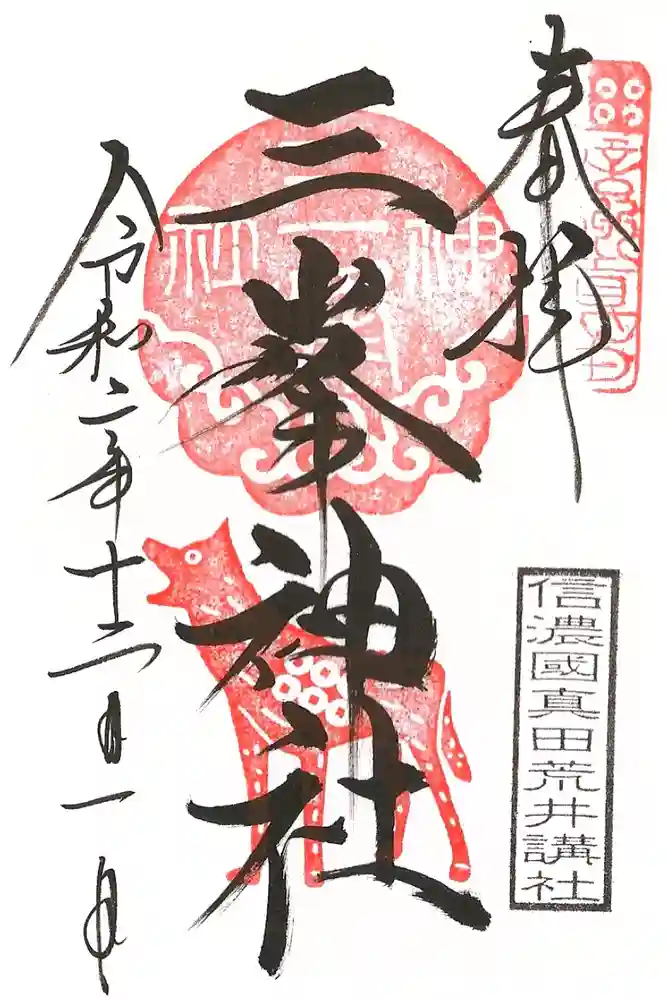 奉拝
三峯神社
令和二年十二月一日
信濃國真田荒井講社